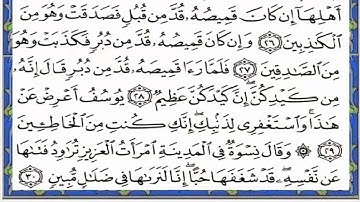 أَهْلِهَآ إِن كَانَ قَمِيصُهُۥ قُدَّ مِن قُبُلٍ فَصَدَقَتْ وَهُوَ مِنَ
ٱلْكَٰذِبِينَ ٢٦ وَإِن كَانَ قَمِيصُهُۥ قُدَّ مِن دُبُرٍ فَكَذَبَتْ وَهُوَ
مِنَ ٱلصَّٰدِقِينَ ٢٧ فَلَمَّا رَءَا قَمِيصَهُۥ قُدَّ مِن دُبُرٍ قَالَ إِنَّهُۥ
مِن كَيْدِكُنَّ ۖ إِنَّ كَيْدَكُنَّ عَظِيمٌ ٢٨ يُوسُفُ أَعْرِضْ عَنْ
هَٰذَا ۚ وَٱسْتَغْفِرِى لِذَنۢبِكِ ۖ إِنَّكِ كُنتِ مِنَ ٱلْخَاطِـِٔينَ
٢٩ ۞ وَقَالَ نِسْوَةٌ فِى ٱلْمَدِينَةِ ٱمْرَأَتُ ٱلْعَزِيزِ تُرَٰوِدُ فَتَىٰهَا
عَن نَّفْسِهِۦ ۖ قَدْ شَغَفَهَا حُبًّا ۖ إِنَّا لَنَرَىٰهَا فِى ضَلَٰلٍ مُّبِينٍ ٣٠